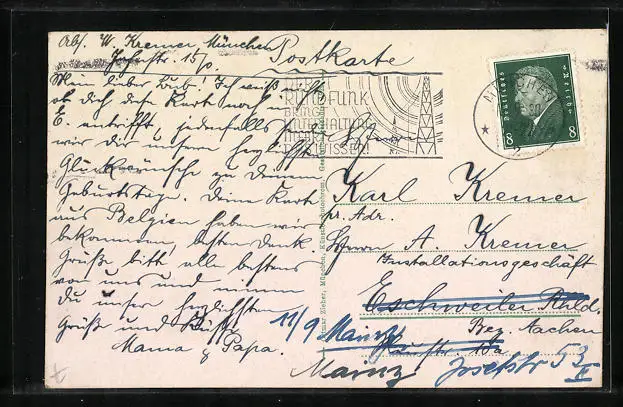 Abs. W. Kremer München
Postkarte
Mein lieber Bub! Ich weiß nicht
ob dich diese Karte noch in
E. antrifft, jedenfalls
wir dir unsern herzlichsten
Glückwünsche zu deinem
Geburtstage. Deine Karte
aus Belgien haben wir
bekommen, besten Dank.
Grüße bitte alle bestens
von uns und nimm
du unsere herzlichsten
Grüße und Küsse
Mama & Papa.
RUNDFUNK
BRINGT
UNTERHALTUNG
WISSEN!
MÜNCHEN
Deutsches Reich
8 8
Karl Kremer
pr. Adr.
Herrn A. Kremer
Installationsgeschäft
Eschweiler Rhld.
Bez. Aachen
11/9 Mainz
Mainz Josefstr 53
II
Ottmar Zieher, München, Künstlerpostkarten